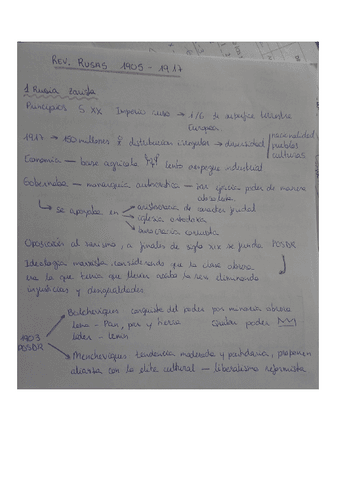 REV. RUSAS 1905 - 1917
1 Rusia zarista
Principios S XX Imperio ruso → 1/6 de superficie terrestre
Europea.
1917 → 150 millones distribución irregular → diversidad nacionalidad
pueblos
culturas
Economía — base agrícola lento despegue industrial
Gobernaba — monarquía autocrática — zar ejercía poder de manera
absoluta
se apoyaba en → aristocracia de carácter feudal
iglesia ortodoxa
burocracia corrupta
Oposición al zarismo, a finales de siglo XIX se funda POSDR
Ideología marxista, considerando que la clase obrera
era la que tenía que llevar a cabo la rev eliminando
injusticias y desigualdades.
1903
POSDR
Bolcheviques conquista del poder por minoría obrera
lema - Pan, paz y tierra poder
líder - Lenin
Mencheviques tendencia moderada y partidaria, proponen
alianza con la élite cultural — liberalismo reformista